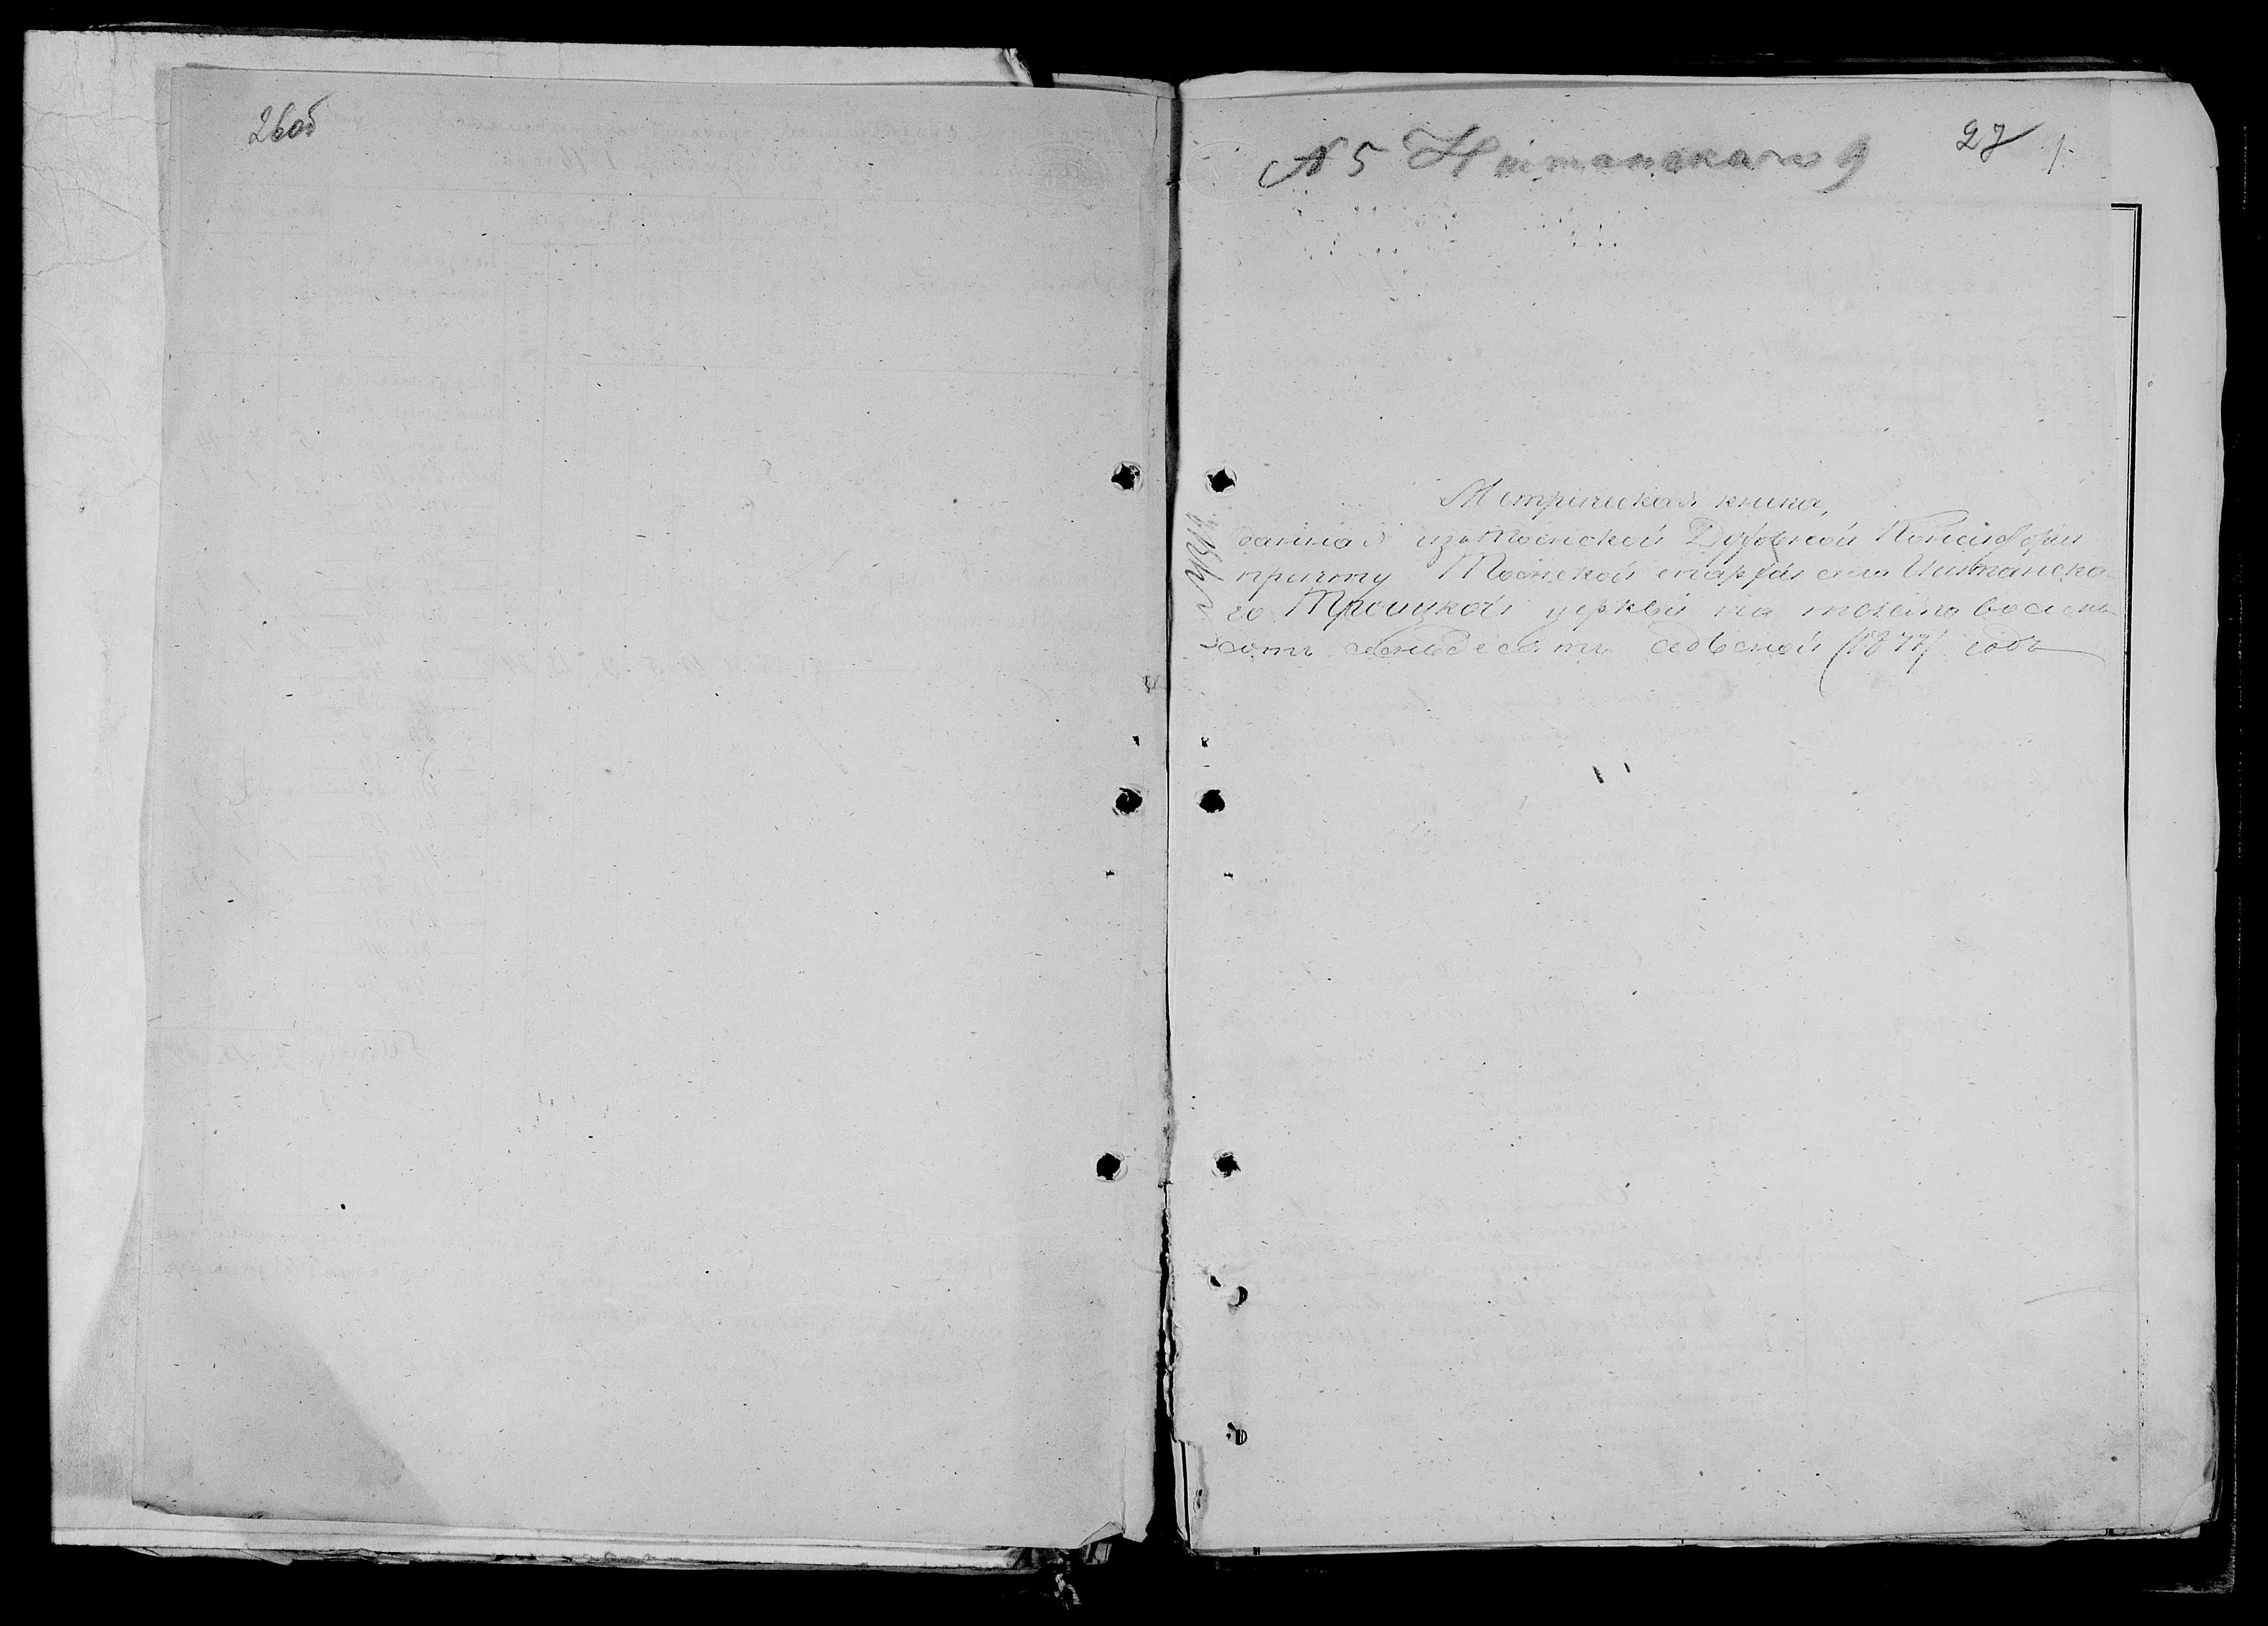 26об
27
№ 5 Ишманскаго 9
Метрическая книга,
данная изъ Томской Духовной Консисторіи
причту Томской епархіи села Ишманска-
го Троицкой церкви на тысяча восемь
сотъ семьдесятъ седьмой (1877) годъ